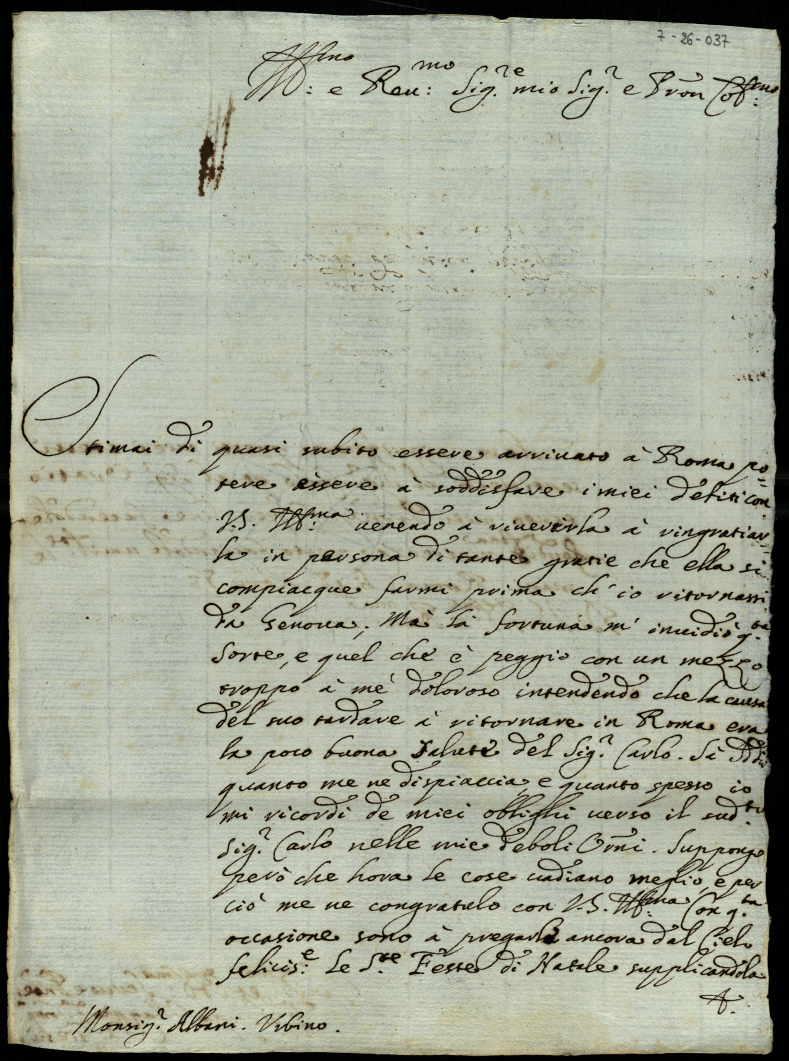 7-26-037
Ill:mo e Reu:mo Sig:re mio Sig:r e Pron Col:mo
Stimai di quasi subito essere arriuato à Roma po=
tere essere à soddisfare i miei debiti con
V.S. Ill:ma uenendo à riuerirla à ringratiar
la in persona di tante gratie che ella si
compiacque farmi prima ch'io ritornassi
da Genoua; Mà la fortuna m'inuidiò q.ta
sorte, e quel che è peggio con un mezzo
troppo à mé doloroso intendendo che la causa
del suo tardare à ritornare in Roma era
la poco buona salute del Sig.r Carlo. Sà Iddio
quanto me ne dispiaccia, e quanto spesso io
mi ricordi de miei oblighi uerso il sud.to
Sig.r Carlo nelle mie deboli Orni. Suppongo
però che hora le cose uadiano meglio, e per
ciò me ne congratulo con V.S. Ill:ma Con q.ta
occasione sono à pregarle ancora dal Cielo
felicis:e le S.te Feste di Natale supplicandola
A.
Monsig.r Albani. Vrbino.